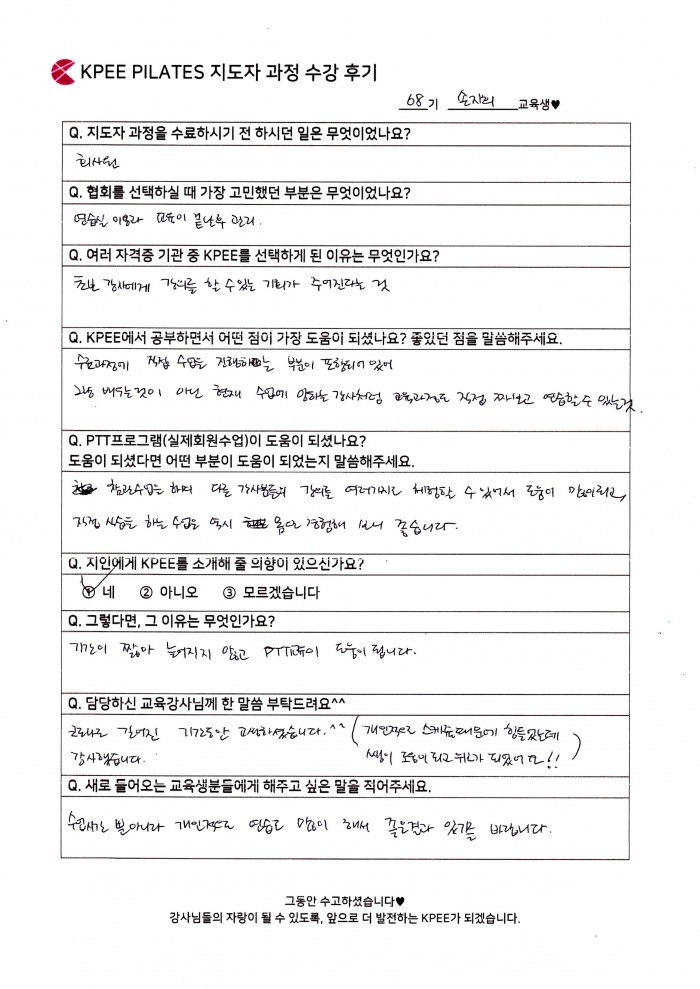 KPEE PILATES 지도자 과정 수강 후기
68기 손지희 교육생♥
Q. 지도자 과정을 수료하시기 전 하시던 일은 무엇이었나요?
회사원
Q. 협회를 선택하실 때 가장 고민했던 부분은 무엇이었나요?
연습실 이용과 교육이 끝난후 관리.
Q. 여러 자격증 기관 중 KPEE를 선택하게 된 이유는 무엇인가요?
초보 강사에게 강의를 할 수 있는 기회가 주어진다는 것
Q. KPEE에서 공부하면서 어떤 점이 가장 도움이 되셨나요? 좋았던 점을 말씀해주세요.
수료과정에 직접 수업을 진행하는 부분이 포함되어 있어
그냥 배우는것이 아닌 현재 수업에 임하는 강사처럼 교육과정도 직접 짜보고 연습할 수 있는것.
Q. PTT프로그램(실제회원수업)이 도움이 되셨나요?
도움이 되셨다면 어떤 부분이 도움이 되었는지 말씀해주세요.
참관수업을 하며 다른 강사분들의 강의를 여러가지로 체험할 수 있어서 도움이 많이되고,
직접 실습을 하는 수업은 역시 몸으로 경험해 보니 좋습니다.
Q. 지인에게 KPEE를 소개해 줄 의향이 있으신가요?
① 네 ② 아니오 ③ 모르겠습니다
Q. 그렇다면, 그 이유는 무엇인가요?
기간이 짧아 늘어지지 않고 PTT교육이 도움이 됩니다.
Q. 담당하신 교육강사님께 한 말씀 부탁드려요^^
코로나로 길어진 기간동안 고생하셨습니다.^^ (개인적으로 스케쥴때문에 힘들었는데
감사했습니다. 쌤이 도움이 되고 위로가 되었어요!!)
Q. 새로 들어오는 교육생분들에게 해주고 싶은 말을 적어주세요.
수업시간 뿐 아니라 개인적으로 연습도 많이 해서 좋은결과 있기를 바랍니다.
그동안 수고하셨습니다♥
강사님들의 자랑이 될 수 있도록, 앞으로 더 발전하는 KPEE가 되겠습니다.